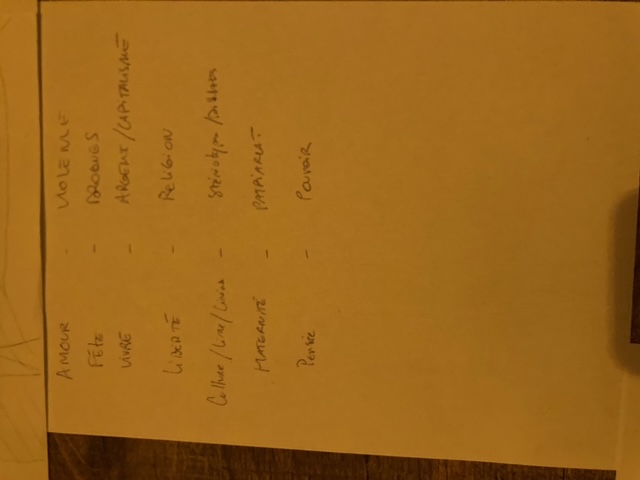 AMOUR - VIOLENCE
FÊTE - DROGUES
VIVRE - ARGENT/CAPITALISME
LIBERTÉ - RELIGION
Culture / Lire /
MATERNITÉ - PATRIARCAT
Pensée - Pouvoir